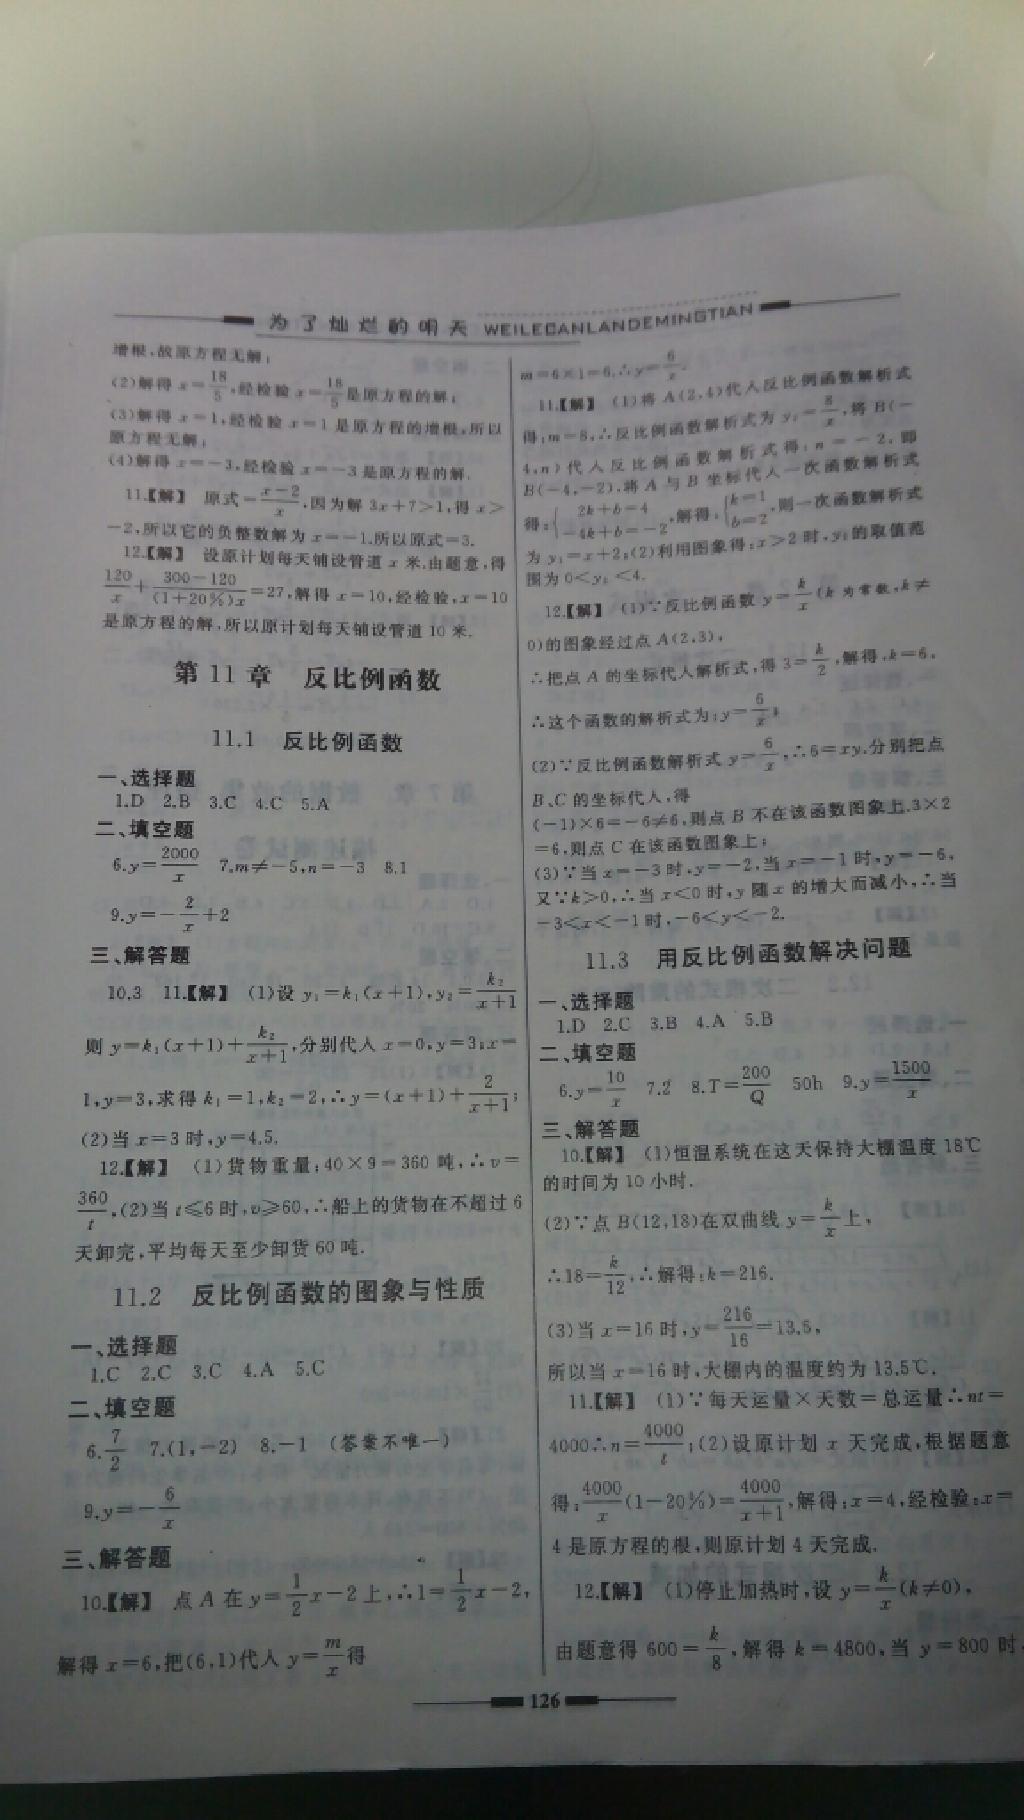 为了灿烂的明天 WEILECANLANDEMINGTIAN
增根,故原方程无解;
(2)解得 x=18/5,经检验 x=18/5是原方程的解;
(3)解得 x=1,经检验 x=1 是原方程的增根,所以
原方程无解;
(4)解得 x=-3,经检验 x=-3 是原方程的解.
11.【解】 原式=(x-2)/x,因为解 3x+7>1,得 x>
-2,所以它的负整数解为 x=-1,所以原式=3.
12.【解】 设原计划每天铺设管道 x 米.由题意,得
120/x+(300-120)/((1+20%)x)=27,解得 x=10,经检验,x=10
是原方程的解.所以原计划每天铺设管道 10 米.
第 11 章 反比例函数
11.1 反比例函数
一、选择题
1.D 2.B 3.C 4.C 5.A
二、填空题
6.y=2000/x 7.m≠-5,n=-3 8.1
9.y=-2/x+2
三、解答题
10.3 11.【解】 (1)设 y₁=k₁(x+1),y₂=k₂/(x+1)
则 y=k₁(x+1)+k₂/(x+1),分别代入 x=0,y=3;x=
1,y=3,求得 k₁=1,k₂=2,∴y=(x+1)+2/(x+1);
(2)当 x=3 时,y=4.5.
12.【解】 (1)货物重量:40×9=360 吨,∴v=
360/t,(2)当 t≤6 时,v≥60,∴船上的货物在不超过 6
天卸完,平均每天至少卸货 60 吨.
11.2 反比例函数的图象与性质
一、选择题
1.C 2.C 3.C 4.A 5.C
二、填空题
6.7/2 7.(1,-2) 8.-1 (答案不唯一)
9.y=-6/x
三、解答题
10.【解】 点 A 在 y=1/2x-2 上,∴1=1/2x-2,
解得 x=6,把(6,1)代入 y=m/x得
m=6×1=6,∴y=6/x.
11.【解】 (1)将 A(2,4)代入反比例函数解析式
得:m=8,∴反比例函数解析式为 y₂=8/x,将 B(-
4,n)代入反比例函数解析式得:n=-2,即
B(-4,-2),将 A 与 B 坐标代入一次函数解析式
得:{2k+b=4 -4k+b=-2,解得:{k=1 b=2,则一次函数解析式
为 y₁=x+2;(2)利用图象得:x>2 时,y₂的取值范
围为 0<y₂<4.
12.【解】 (1)∵反比例函数 y=k/x(k 为常数,k≠
0)的图象经过点 A(2,3),
∴把点 A 的坐标代入解析式,得 3=k/2,解得,k=6,
∴这个函数的解析式为:y=6/x;
(2)∵反比例函数解析式 y=6/x,∴6=xy,分别把点
B、C 的坐标代入,得
(-1)×6=-6≠6,则点 B 不在该函数图象上.3×2
=6,则点 C 在该函数图象上;
(3)∵当 x=-3 时,y=-2,当 x=-1 时,y=-6,
又∵k>0,∴当 x<0 时,y 随 x 的增大而减小,∴当
-3<x<-1 时,-6<y<-2.
11.3 用反比例函数解决问题
一、选择题
1.D 2.C 3.B 4.A 5.B
二、填空题
6.y=10/x 7.2 8.T=200/Q 50h 9.y=1500/x
三、解答题
10.【解】 (1)恒温系统在这天保持大棚温度 18℃
的时间为 10 小时.
(2)∵点 B(12,18)在双曲线 y=k/x上,
∴18=k/12,∴解得:k=216.
(3)当 x=16 时,y=216/16=13.5,
所以当 x=16 时,大棚内的温度约为 13.5℃.
11.【解】 (1)∵每天运量×天数=总运量∴nt=
4000∴n=4000/t;(2)设原计划 x 天完成,根据题意
得:4000/x(1-20%)=4000/(x+1),解得:x=4,经检验:x=
4 是原方程的根,则原计划 4 天完成.
12.【解】 (1)停止加热时,设 y=k/x(k≠0),
由题意得 600=k/8,解得 k=4800,当 y=800 时,
126